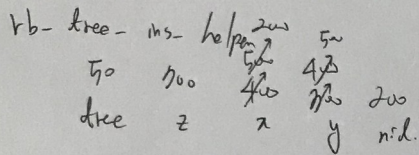 rb- tree- ins- helper 200 500
50 300 500 400
400 300 200
tree z x y nil.